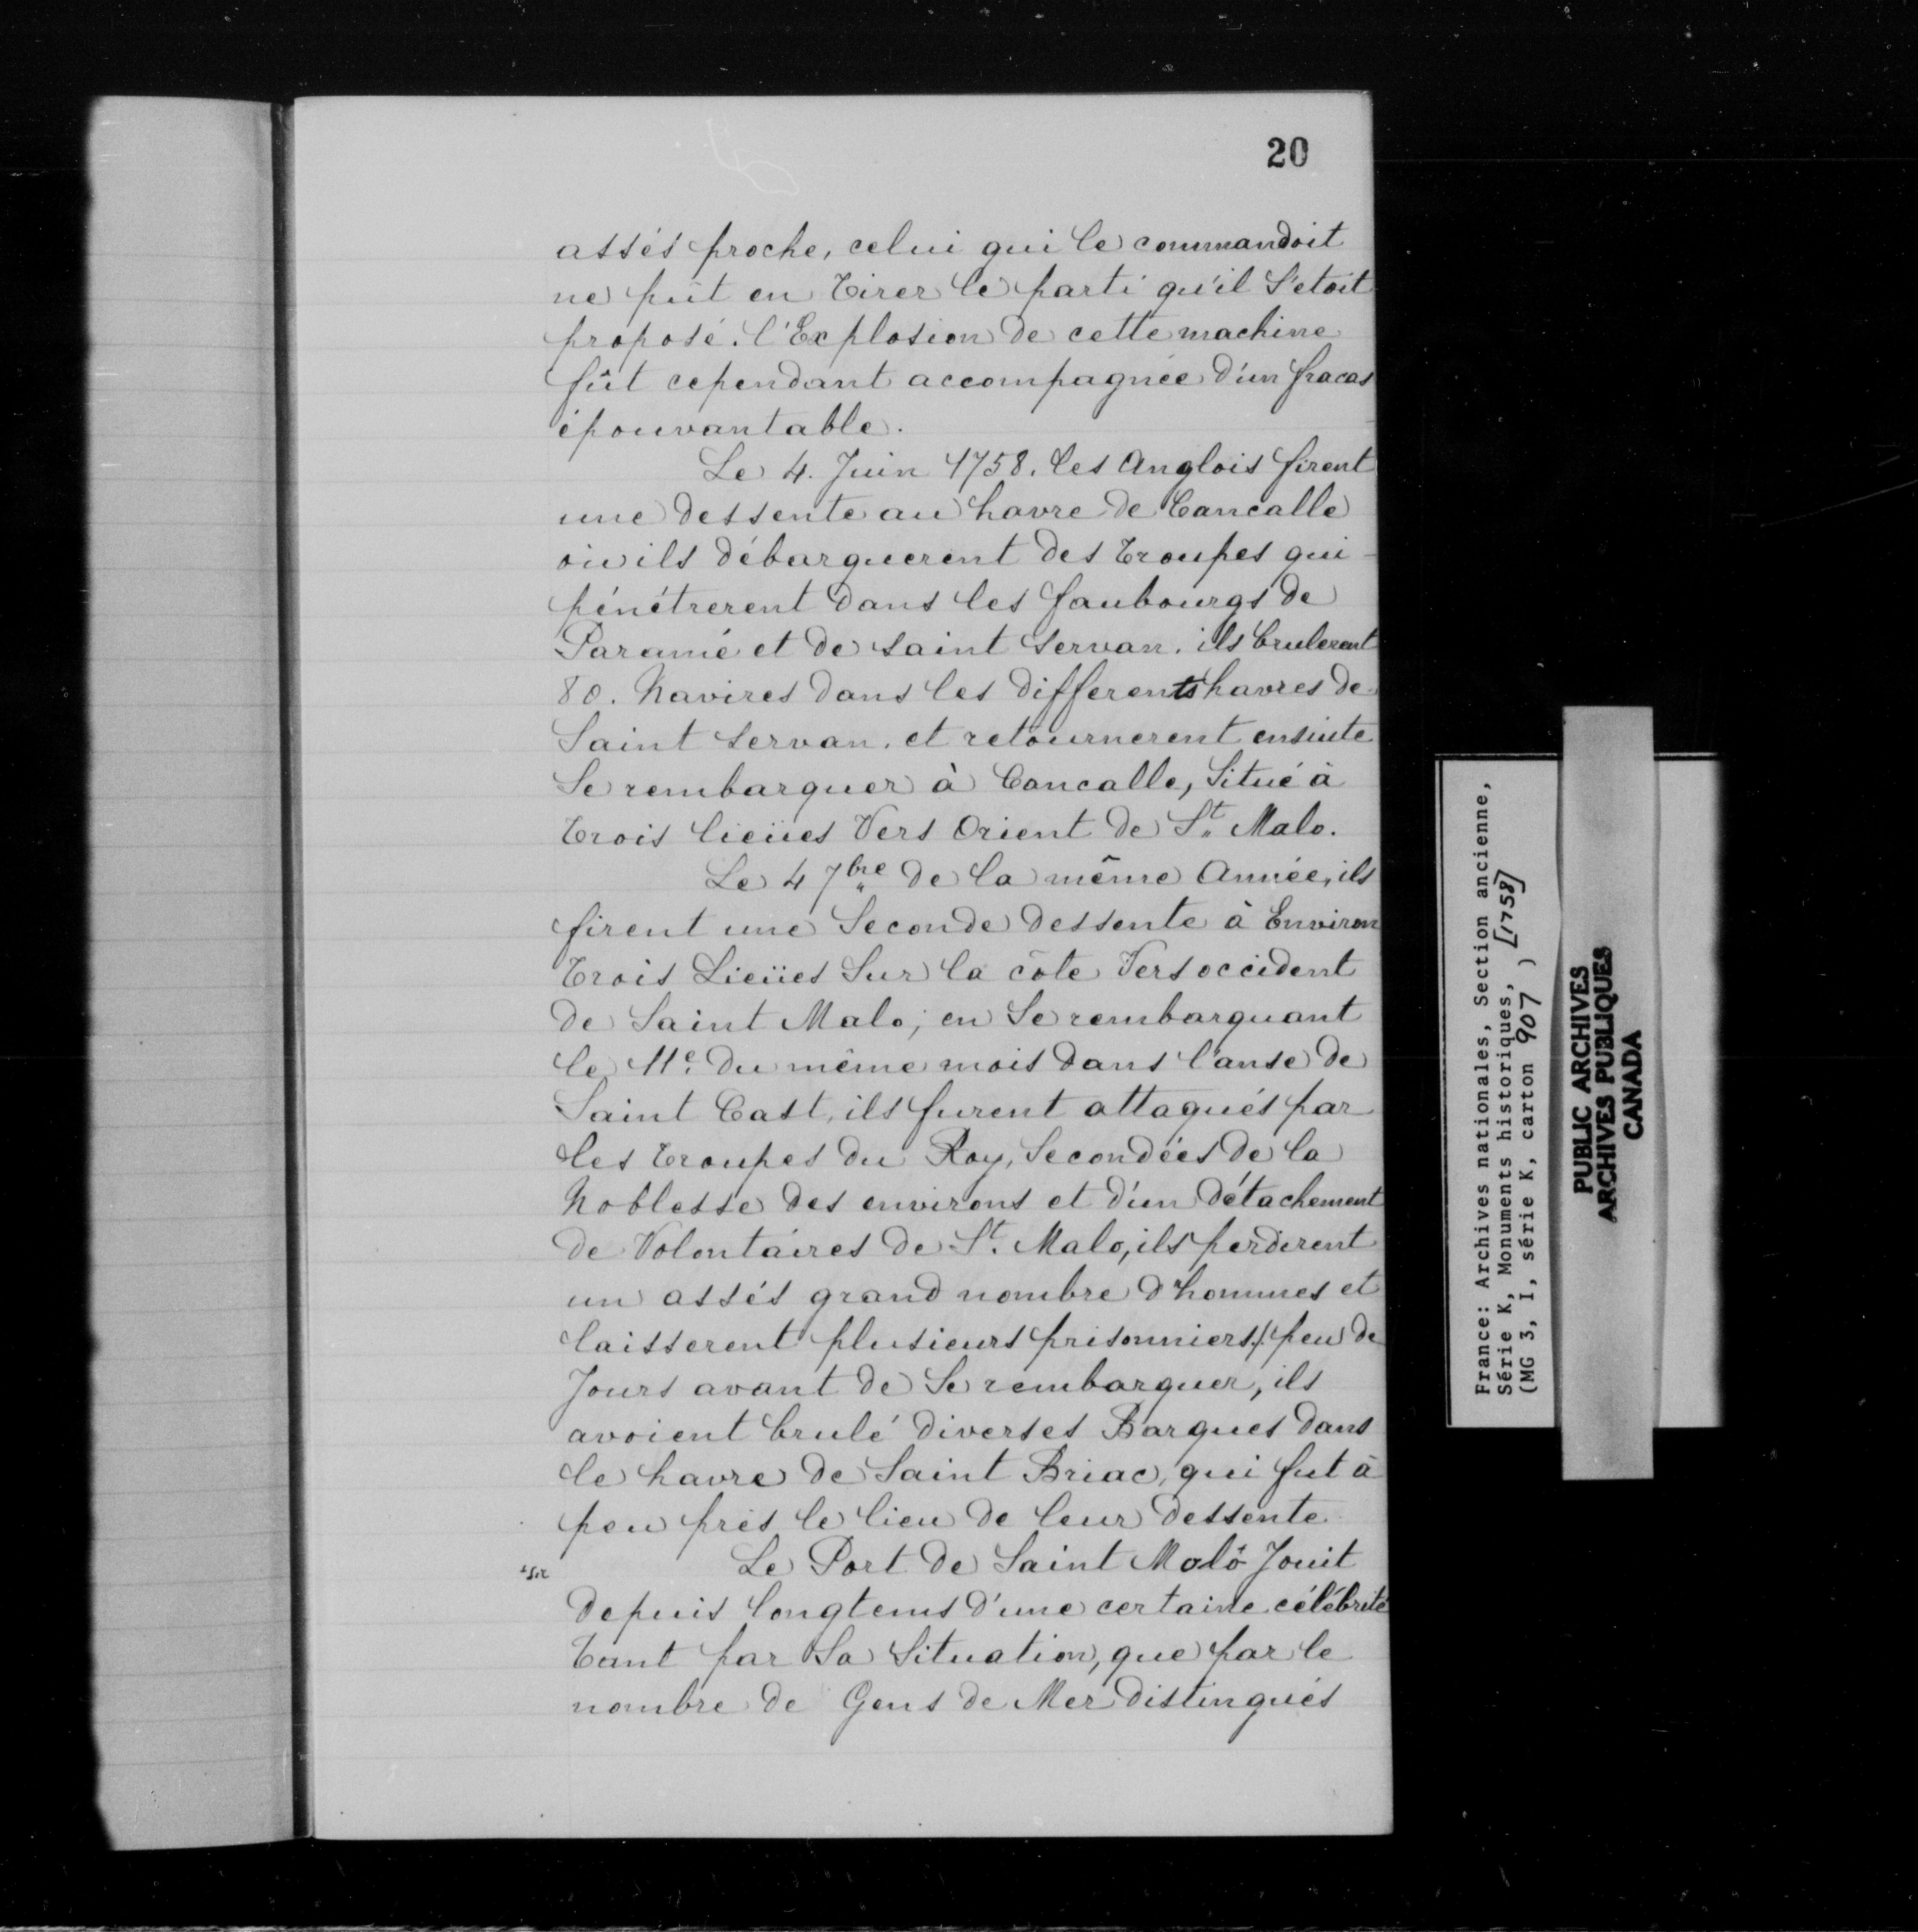 20
assés proche, celui qui le commandoit
ne pût en Tirer le parti qu'il S'etoit
proposé. l'Explosion de cette machine
fût cependant accompagnée d'un fracas
épouvantable.
Le 4. Juin 1758. les Anglois firent
une dessente au havre de Cancalle
où ils débarquerent des Troupes qui
pénétrerent dans les faubourgs de
Paramé et de Saint Servan. ils brulerent
80. Navires dans les differents havres de
Saint Servan. et retournerent ensuite
Se rembarquer à Cancalle, Situé à
Trois lieües Vers Orient de St. Malo.
Le 4 7bre de la même Année, ils
firent une Seconde dessente à Environ
Trois Lieües Sur la côte Vers occident
de Saint Malo; en Se rembarquant
le 11e. du même mois dans l'anse de
Saint Cast, ils furent attaqués par
les Troupes du Roy, Secondées de la
Noblesse des environs et d'un détachement
de Volontaires de St. Malo, ils perdirent
un assés grand nombre d'hommes et
laisserent plusieurs prisonniers/. peu de
Jours avant de Se rembarquer, ils
avoient brulé diverses Barques dans
le havre de Saint Briac, qui fut à
peu prés le lieu de leur dessente.
Le Port de Saint Malô Jouit
depuis longtems d'une certaine célébrité
Tant par Sa Situation, que par le
nombre de Gens de Mer distingués
France: Archives nationales, Section ancienne,
Série K, Monuments historiques, [1758]
(MG 3, I, série K, carton 907 )
PUBLIC ARCHIVES
ARCHIVES PUBLIQUES
CANADA